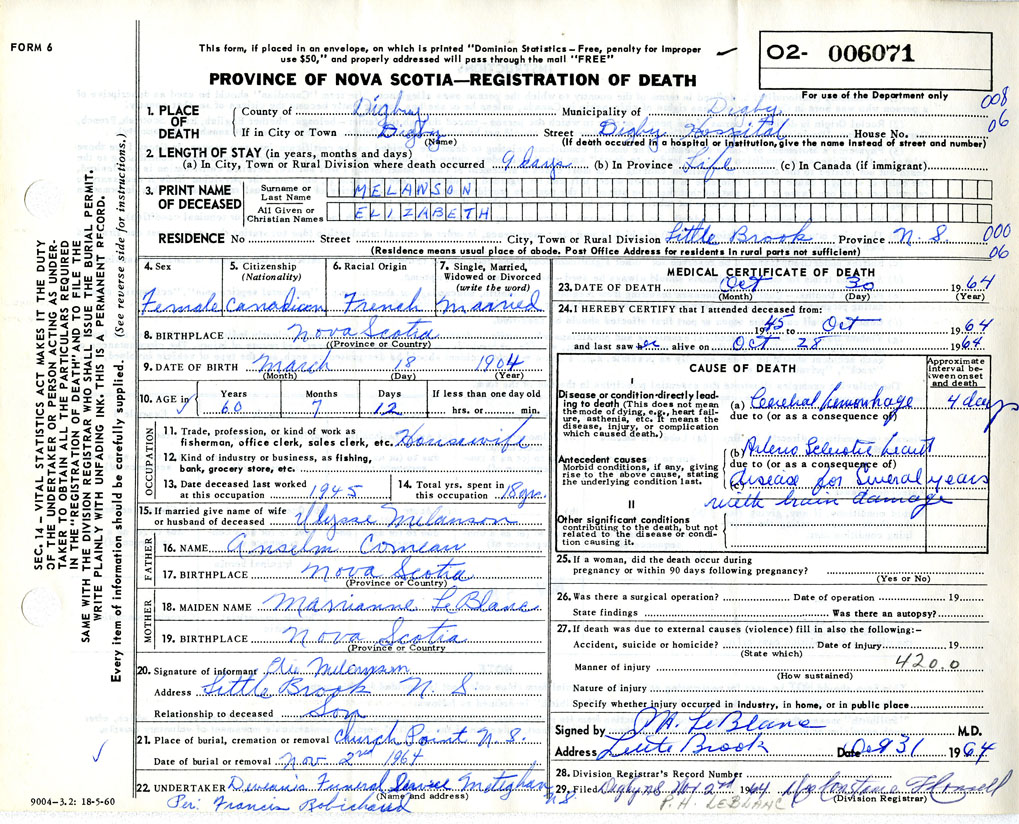 FORM 6
This form, if placed in an envelope, on which is printed "Dominion Statistics – Free, penalty for improper
use $50," and properly addressed will pass through the mail "FREE"
02- 006071
For use of the Department only
PROVINCE OF NOVA SCOTIA—REGISTRATION OF DEATH
008
06
1. PLACE OF DEATH
County of Digby Municipality of Digby
If in City or Town Digby Street Digby Hospital House No.
(Name) (If death occurred in a hospital or institution, give the name instead of street and number)
2. LENGTH OF STAY (in years, months and days)
(a) In City, Town or Rural Division where death occurred 9 days (b) In Province Life (c) In Canada (if immigrant)
3. PRINT NAME OF DECEASED
Surname or Last Name MELANSON
All Given or Christian Names ELIZABETH
RESIDENCE No Street City, Town or Rural Division Little Brook Province N.S. 000
(Residence means usual place of abode. Post Office Address for residents in rural parts not sufficient) 06
4. Sex Female
5. Citizenship (Nationality) Canadian
6. Racial Origin French
7. Single, Married, Widowed or Divorced (write the word) Married
8. BIRTHPLACE Nova Scotia
(Province or Country)
9. DATE OF BIRTH March 18 1904
(Month) (Day) (Year)
10. AGE in Years Months Days If less than one day old
60 7 12 hrs. or min.
OCCUPATION
11. Trade, profession, or kind of work as
fisherman, office clerk, sales clerk, etc. Housewife
12. Kind of industry or business, as fishing,
bank, grocery store, etc.
13. Date deceased last worked at this occupation 1945
14. Total yrs. spent in this occupation 18 yrs.
15. If married give name of wife
or husband of deceased Ulysse Melanson
FATHER
16. NAME Anselm Comeau
17. BIRTHPLACE Nova Scotia
(Province or Country)
MOTHER
18. MAIDEN NAME Marianne LeBlanc
19. BIRTHPLACE Nova Scotia
(Province or Country)
20. Signature of informant Elie Melanson
Address Little Brook N S
Relationship to deceased Son
21. Place of burial, cremation or removal Church Point N.S.
Date of burial or removal Nov. 2nd 1964
22. UNDERTAKER Funeral Service Meteghan N.S.
(Name and address)
Per: Francis Robichaud
MEDICAL CERTIFICATE OF DEATH
23. DATE OF DEATH Oct 30 1964
(Month) (Day) (Year)
24. I HEREBY CERTIFY that I attended deceased from:
1945 to Oct 1964
and last saw her alive on Oct 28 1964.
CAUSE OF DEATH
Approximate interval between onset and death
I
Disease or condition directly leading to death (This does not mean the mode of dying, e.g., heart failure, asthenia, etc. It means the disease, injury, or complication which caused death.)
(a) Cerebral hemorrhage 4 days
due to (or as a consequence of)
Antecedent causes
Morbid conditions, if any, giving rise to the above cause, stating the underlying condition last.
(b) Arterio Sclerotic heart
due to (or as a consequence of)
(c) disease for several years
with brain damage
II
Other significant conditions
contributing to the death, but not related to the disease or condition causing it.
25. If a woman, did the death occur during
pregnancy or within 90 days following pregnancy?
(Yes or No)
26. Was there a surgical operation? Date of operation 19
State findings Was there an autopsy?
27. If death was due to external causes (violence) fill in also the following:–
Accident, suicide or homicide? Date of injury 19
(State which)
Manner of injury 420.0
(How sustained)
Nature of injury
Specify whether injury occurred in industry, in home, or in public place
Signed by LeBlanc M.D.
Address Little Brook Date Oct 31 1964
28. Division Registrar's Record Number
29. Filed Digby N.S. Nov. 2nd 1964
P. H. LEBLANC (Division Registrar)
SEC. 14 – VITAL STATISTICS ACT MAKES IT THE DUTY
OF THE UNDERTAKER OR PERSON ACTING AS UNDERTAKER TO OBTAIN ALL THE PARTICULARS REQUIRED
IN THE "REGISTRATION OF DEATH" AND TO FILE THE
SAME WITH THE DIVISION REGISTRAR WHO SHALL ISSUE THE BURIAL PERMIT.
WRITE PLAINLY WITH UNFADING INK. THIS IS A PERMANENT RECORD.
Every item of information should be carefully supplied. (See reverse side for instructions.)
9004–3.2: 18-5-60